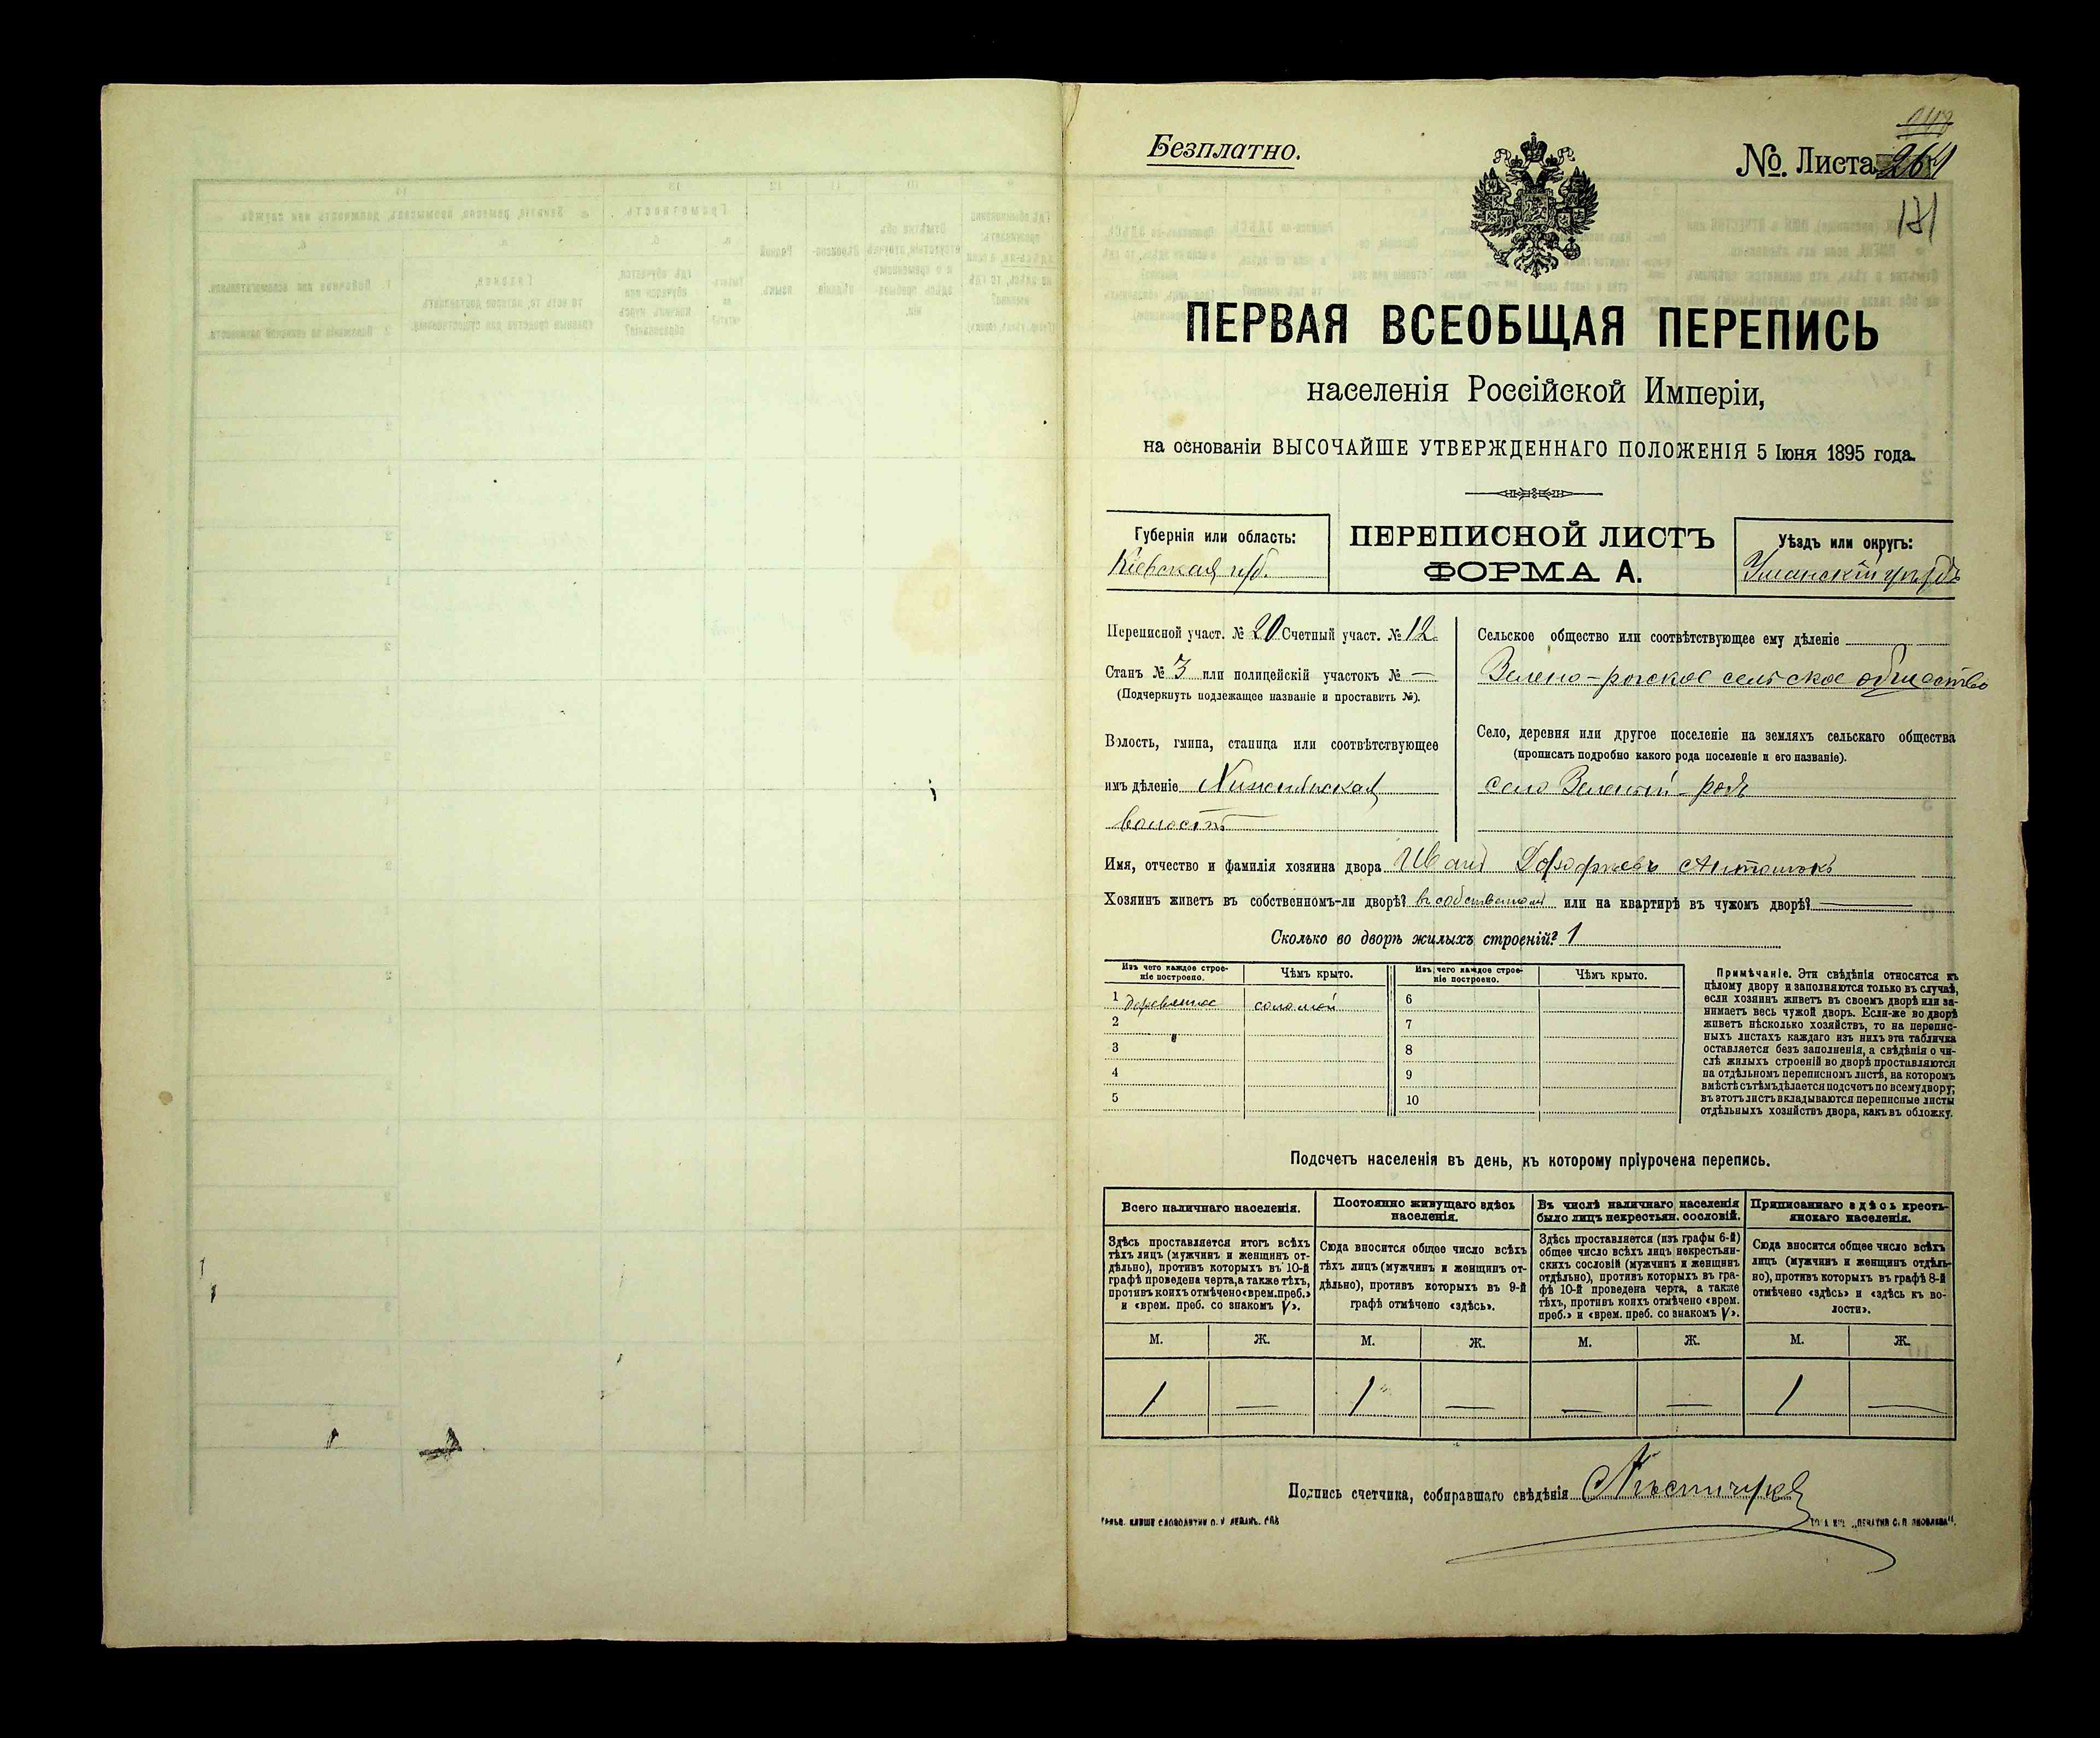 Безплатно.
№ Листа 261
181
ПЕРВАЯ ВСЕОБЩАЯ ПЕРЕПИСЬ
населенія Россійской Имперіи,
на основаніи ВЫСОЧАЙШЕ УТВЕРЖДЕННАГО ПОЛОЖЕНІЯ 5 Іюня 1895 года.
Губернія или область:
Кіевская губ.
ПЕРЕПИСНОЙ ЛИСТЪ
ФОРМА А.
Уѣздъ или округъ:
Уманскій уѣздъ
Переписной участ. № 20 Счетный участ. № 12.
Станъ № 3 или полицейскій участокъ № —
(Подчеркнуть подлежащее названіе и проставить №).
Волость, гмина, станица или соотвѣтствующее
имъ дѣленіе
волость
Сельское общество или соотвѣтствующее ему дѣленіе
Зелено-рогское сельское общество
Село, деревня или другое поселеніе на земляхъ сельскаго общества
(прописать подробно какого рода поселеніе и его названіе).
село Зеленый-рогъ
Имя, отчество и фамилія хозяина двора Иванъ
Хозяинъ живетъ въ собственномъ-ли дворѣ? въ собственномъ или на квартирѣ въ чужомъ дворѣ? —
Сколько во дворѣ жилыхъ строеній? 1
Изъ чего каждое строе-
ніе построено.
Чѣмъ крыто.
Изъ чего каждое строе-
ніе построено.
Чѣмъ крыто.
1 деревянное соломой 6
2 7
3 8
4 9
5 10
Примѣчаніе. Эти свѣдѣнія относятся къ
цѣлому двору и заполняются только въ случаѣ,
если хозяинъ живетъ въ своемъ дворѣ или за-
нимаетъ весь чужой дворъ. Если-же во дворѣ
живетъ нѣсколько хозяйствъ, то на перепис-
ныхъ листахъ каждаго изъ нихъ эта табличка
оставляется безъ заполненія, а свѣдѣнія о чи-
слѣ жилыхъ строеній во дворѣ проставляются
на отдѣльномъ переписномъ листѣ, на которомъ
вмѣстѣ съ тѣмъ дѣлается подсчетъ по всему двору;
въ этотъ листъ вкладываются переписные листы
отдѣльныхъ хозяйствъ двора, какъ въ обложку.
Подсчетъ населенія въ день, къ которому пріурочена перепись.
Всего наличнаго населенія.
Здѣсь проставляется итогъ всѣхъ
тѣхъ лицъ (мужчинъ и женщинъ от-
дѣльно), противъ которыхъ въ 10-й
графѣ проведена черта, а также тѣхъ,
противъ коихъ отмѣчено «врем. преб.»
и «врем. преб. со знакомъ V».
Постоянно живущаго здѣсь
населенія.
Сюда вносится общее число всѣхъ
тѣхъ лицъ (мужчинъ и женщинъ от-
дѣльно), противъ которыхъ въ 9-й
графѣ отмѣчено «здѣсь».
Въ числѣ наличнаго населенія
было лицъ некрестьян. сословій.
Здѣсь проставляется (изъ графы 6-й)
общее число всѣхъ лицъ некрестьян-
скихъ сословій (мужчинъ и женщинъ
отдѣльно), противъ которыхъ въ гра-
фѣ 10-й проведена черта, а также
тѣхъ, противъ коихъ отмѣчено «врем.
преб.» и «врем. преб. со знакомъ V».
Приписаннаго здѣсь кресть-
янскаго населенія.
Сюда вносится общее число всѣхъ
лицъ (мужчинъ и женщинъ отдѣль-
но), противъ которыхъ въ графѣ 8-й
отмѣчено «здѣсь» и «здѣсь къ во-
лости».
М. Ж. М. Ж. М. Ж. М. Ж.
1 — 1 — — — 1 —
Подпись счетчика, собиравшаго свѣдѣнія